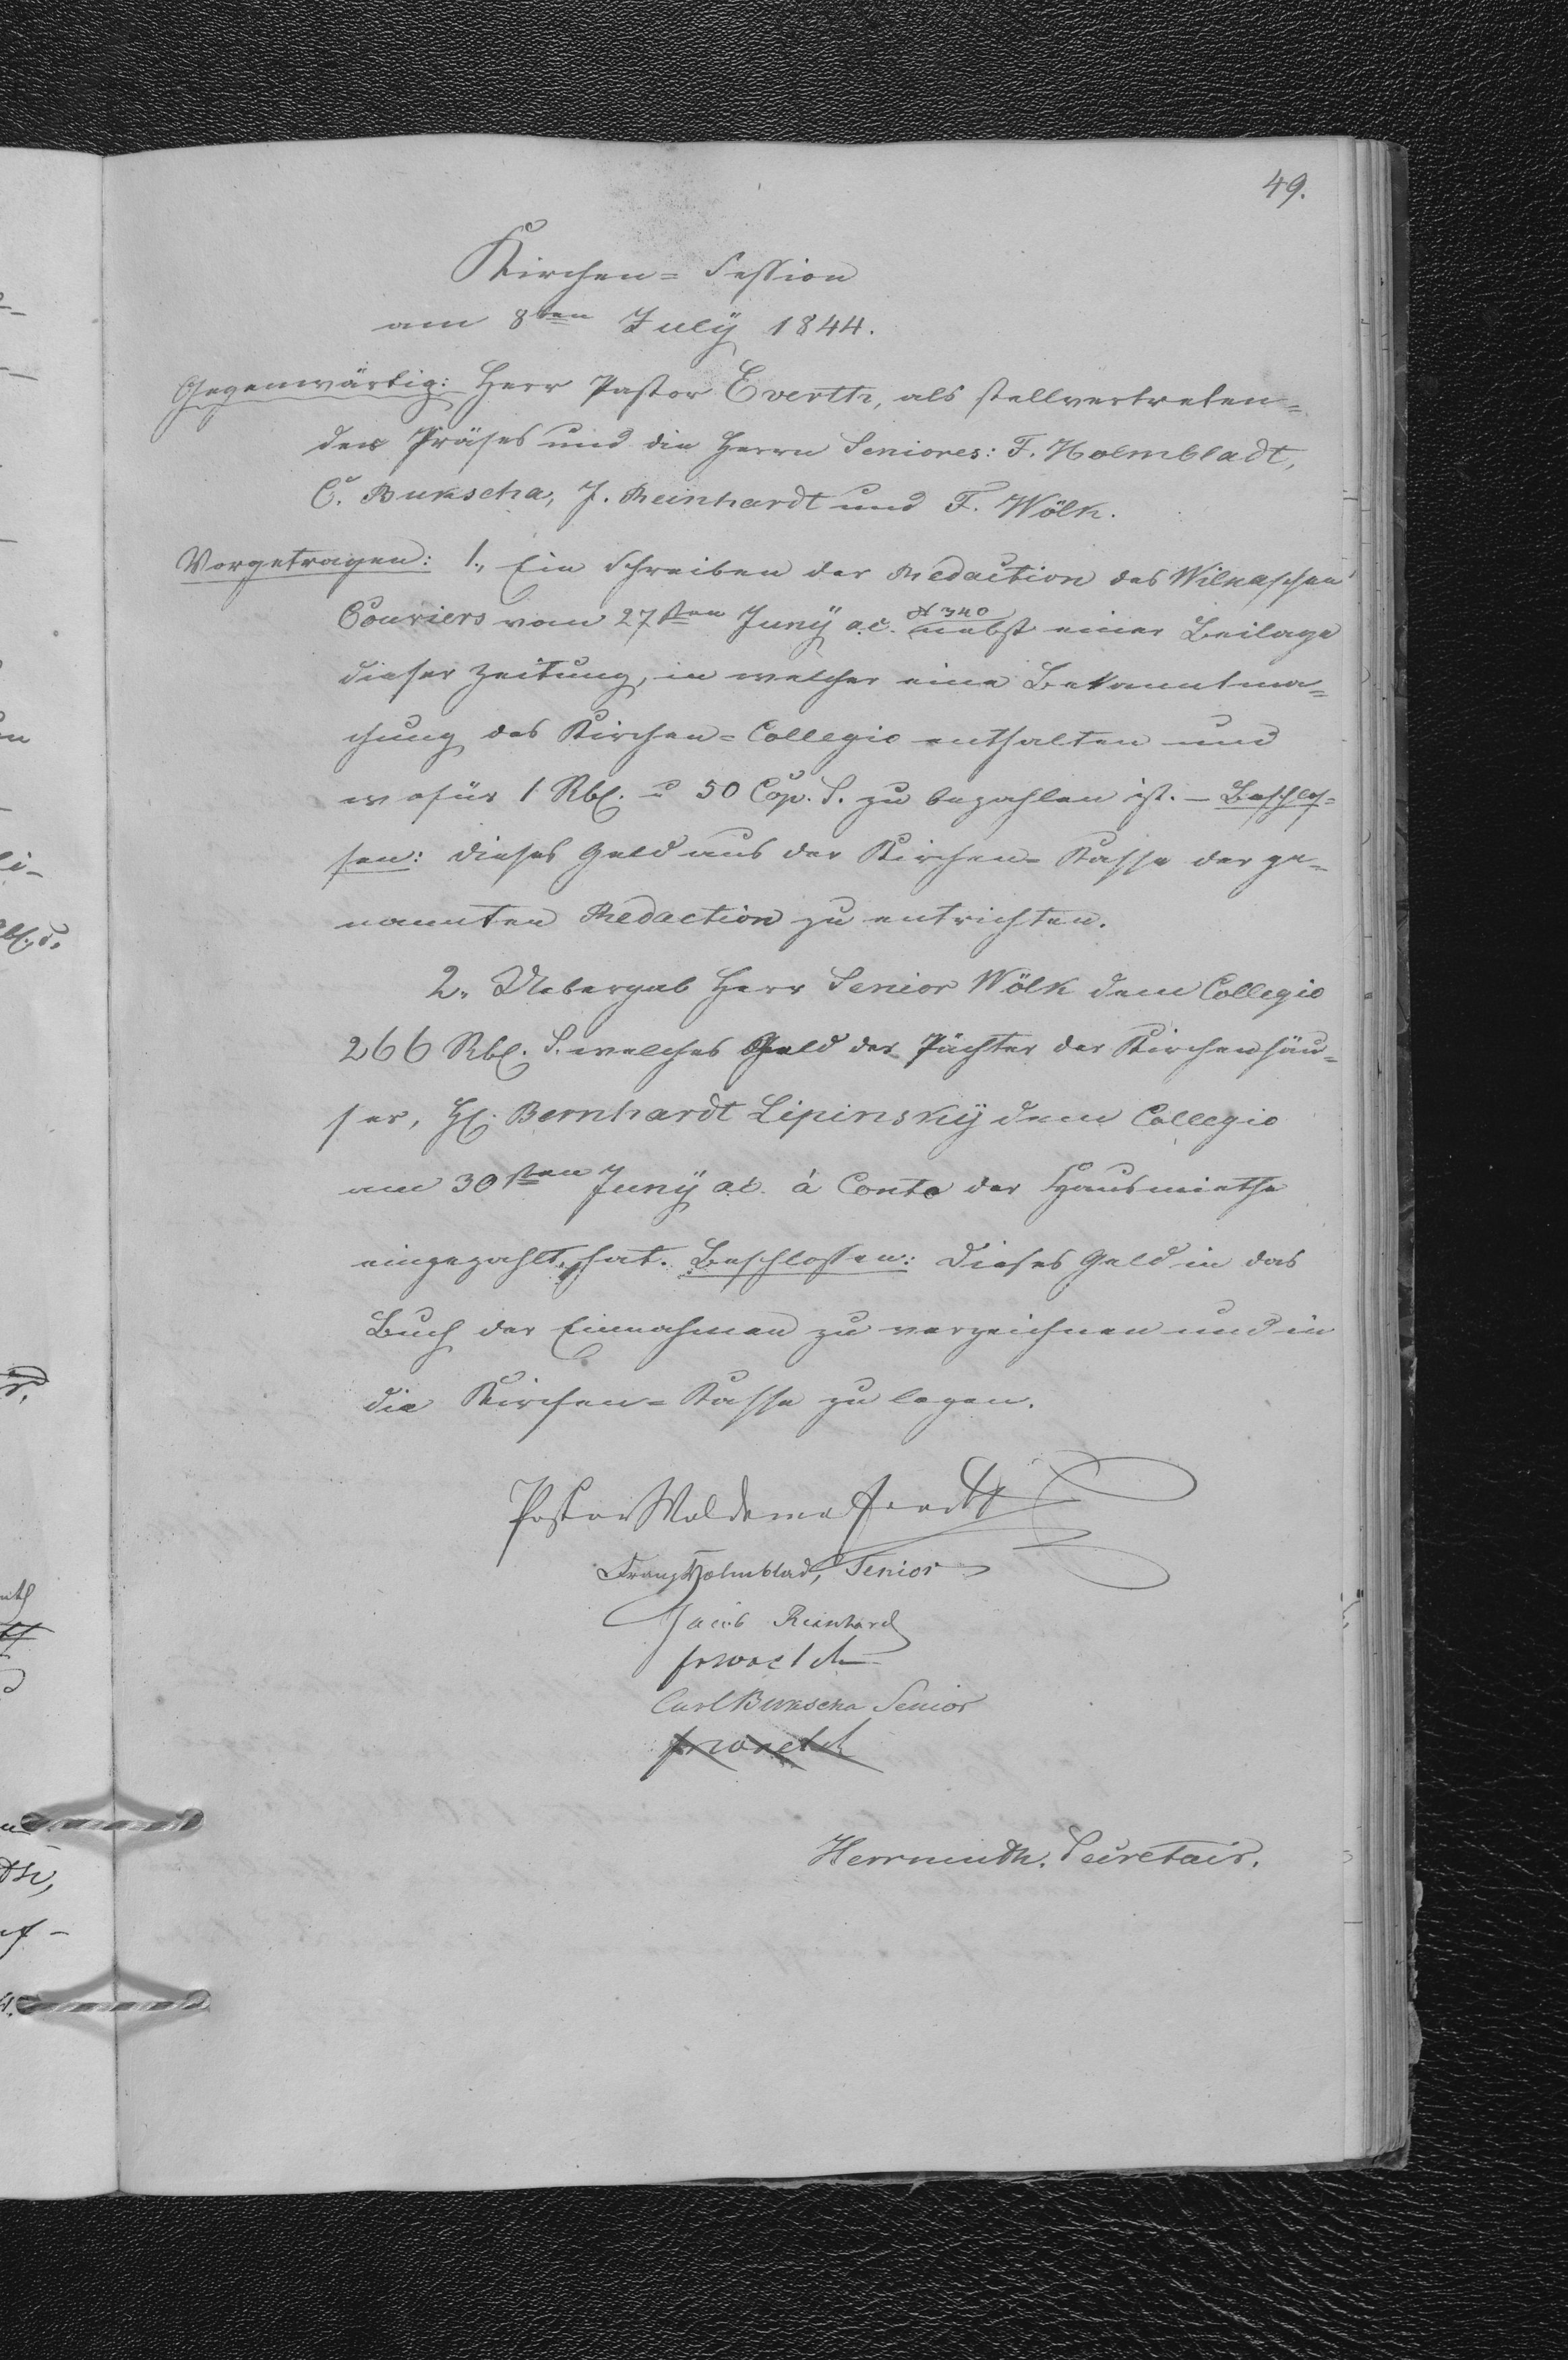 49.
Kirchen = Session
am 8ten Julÿ 1844.
Gegenwärtig: Herr Pastor Everth, als stellvertreten=
der Präses und die Herrn Seniores: F. Holmbladt,
C. Bukscha, J. Reinhardt und F. Wölk.
Vorgetragen: 1., Ein Schreiben der Redaction des Wilnaschen
Couriers vom 27sten Junÿ a.c. N 340 nebst einer Beilage
dieser Zeitung, in welcher eine Bekanntma=
chung des Kirchen=Collegio enthalten und
wofür 1 Rbl. 50 Cop. S. zu bezahlen ist. – Beschlos=
sen: dieses Geld aus der Kirchen=Kasse der ge=
nannten Redaction zu entrichten.
2., Uebergab Herr Senior Wölk dem Collegio
266 Rbl. S. welches Geld der Pächter der Kirchenhäu=
ser, H. Bernhardt Lipinskÿ dem Collegio
am 30sten Junÿ a.c. à Conto der Hausmiethe
eingezahlt hat. Beschlossen: dieses Geld in das
Buch der Einnahmen zu verzeichnen und in
die Kirchen=Kasse zu legen.
Pastor Woldemar Everth
Franz Holmblad, Senior
Jacob Reinhard
fr woelck
Carl Bukscha Senior
fr woelck
Herrmuth. Secretair.